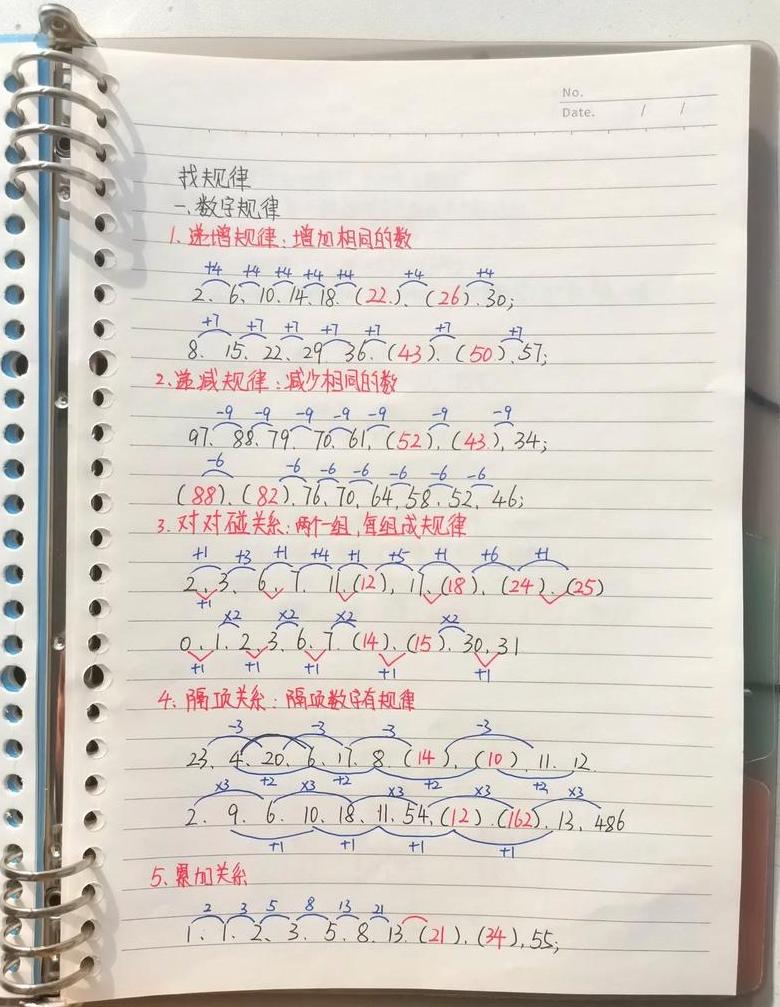 No.
Date. / /
找规律
一、数字规律
1、递增规律:增加相同的数
+4 +4 +4 +4 +4 +4 +4
2、6、10、14、18、(22)、(26)、30;
+7 +7 +7 +7 +7 +7 +7
8、15、22、29、36、(43)、(50)、57;
2、递减规律:减少相同的数
-9 -9 -9 -9 -9 -9 -9
97、88、79、70、61、(52)、(43)、34;
-6 -6 -6 -6 -6 -6 -6
(88)、(82)、76、70、64、58、52、46;
3、对对碰关系:两个一组,每组成规律
+1 +3 +1 +4 +1 +5 +1 +6 +1
2、3、6、7、11、(12)、17、(18)、(24)、(25)
+1
×2 ×2 ×2 ×2
0、1、2、3、6、7、(14)、(15)、30、31
+1 +1 +1 +1 +1
4、隔项关系:隔项数字有规律
-3 -3 -3 -3
23、4、20、6、17、8、(14)、(10)、11、12
+2 +2 +2 +2
×3 ×3 ×3 ×3 ×3
2、9、6、10、18、11、54、(12)、(162)、13、486
+1 +1 +1 +1
5、累加关系
2 3 5 8 13 21
1、1、2、3、5、8、13、(21)、(34)、55;